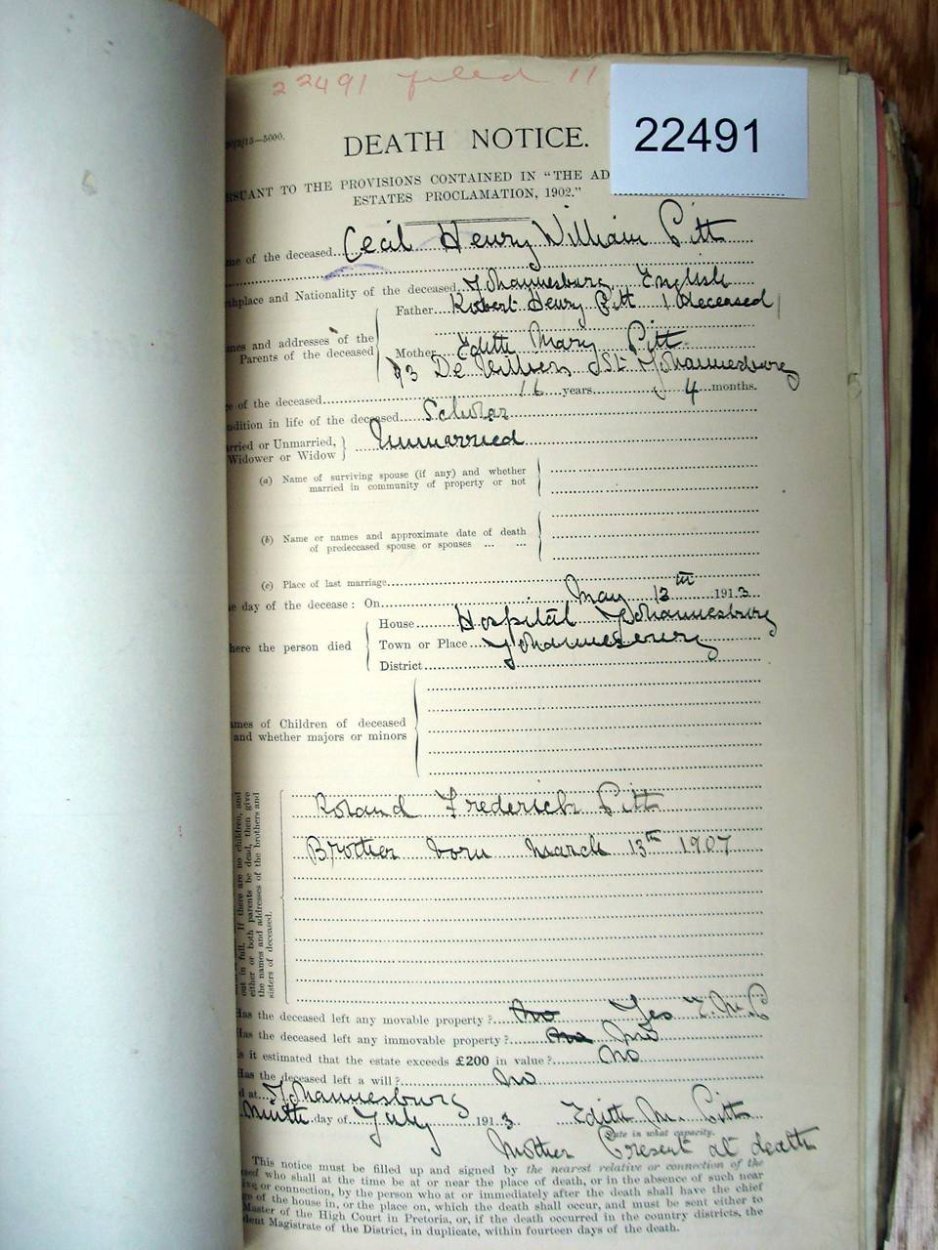 22491 filed 11
22491
DEATH NOTICE.
TO THE PROVISIONS CONTAINED IN "THE AD
ESTATES PROCLAMATION, 1902."
me of the deceased Cecil Henry William Pitt
thplace and Nationality of the deceased Johannesburg English
Father Robert Henry Pitt (Deceased)
mes and addresses of the
Parents of the deceased
Mother Edith Mary Pitt
93 De Villiers St Johannesburg
e of the deceased 16 years 4 months.
ndition in life of the deceased Scholar
rried or Unmarried,
Widower or Widow
Unmarried
(a) Name of surviving spouse (if any) and whether
married in community of property or not
(b) Name or names and approximate date of death
of predeceased spouse or spouses ... ...
(c) Place of last marriage
e day of the decease: On May 13th 1913
House Hospital Johannesburg
here the person died
Town or Place Johannesburg
District
ames of Children of deceased
and whether majors or minors
out in full. If there are no children, and
either or both parents be dead, then give
the names and addresses of the brothers and
sisters of deceased.
Roland Frederich Pitt
Brother born march 13th 1907
Has the deceased left any movable property? No Yes E.M.P
Has the deceased left any immovable property? no
Is it estimated that the estate exceeds £200 in value? no
Has the deceased left a will? no
d at Johannesburg
ninth day of July 1913 Edith M. Pitt
State in what capacity.
Mother Present at death
This notice must be filled up and signed by the nearest relative or connection of the
sed who shall at the time be at or near the place of death, or in the absence of such near
or connection, by the person who at or immediately after the death shall have the chief
e of the house in, or the place on, which the death shall occur, and must be sent either to
Master of the High Court in Pretoria, or, if the death occurred in the country districts, the
dent Magistrate of the District, in duplicate, within fourteen days of the death.